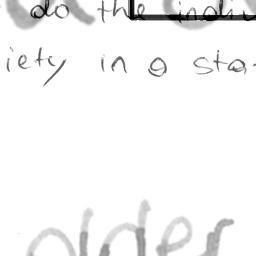 do the indiv
iety in a sta
older